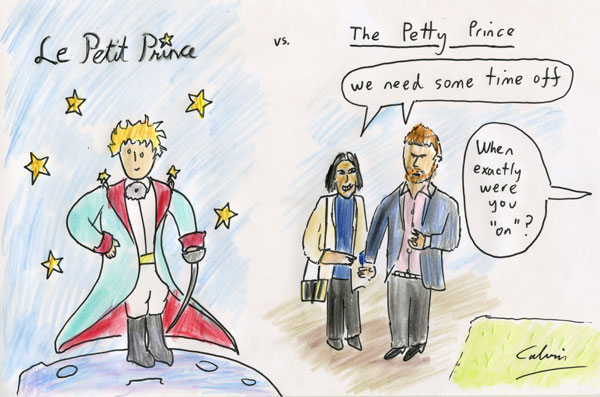 Le Petit Prince
vs.
The Petty Prince
we need some time off
When
exactly
were
you
"on"?
Calvin